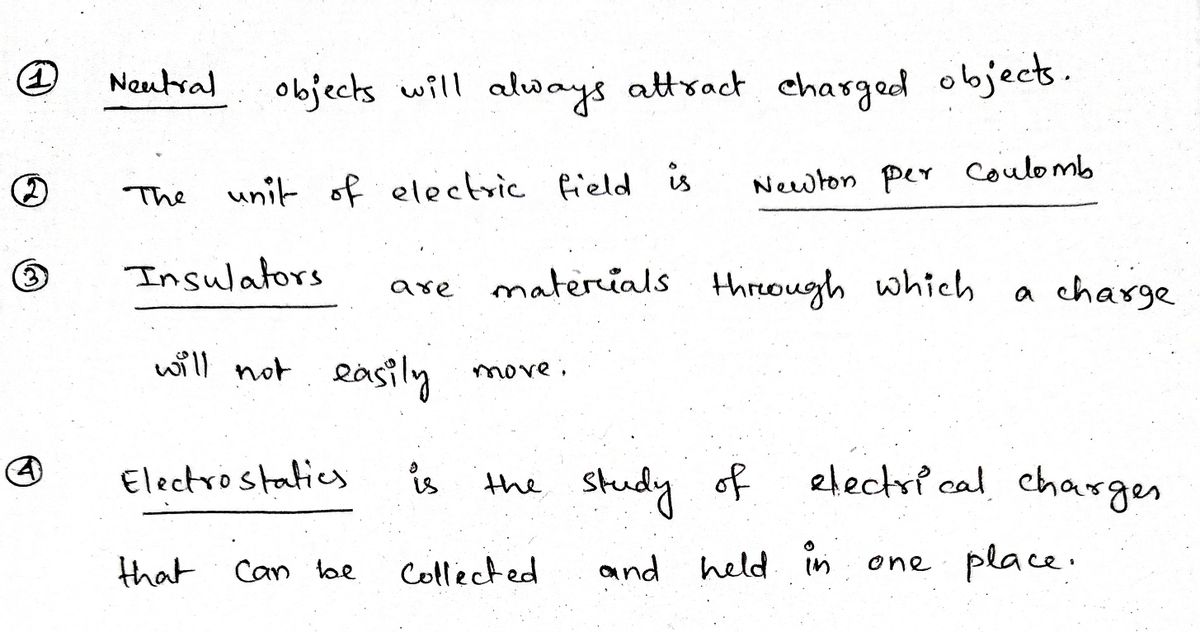 ① Neutral objects will always attract charged objects.
② The unit of electric field is Newton per Coulomb
③ Insulators are materials through which a charge
will not easily move.
④ Electrostatics is the study of electrical charges
that can be collected and held in one place.